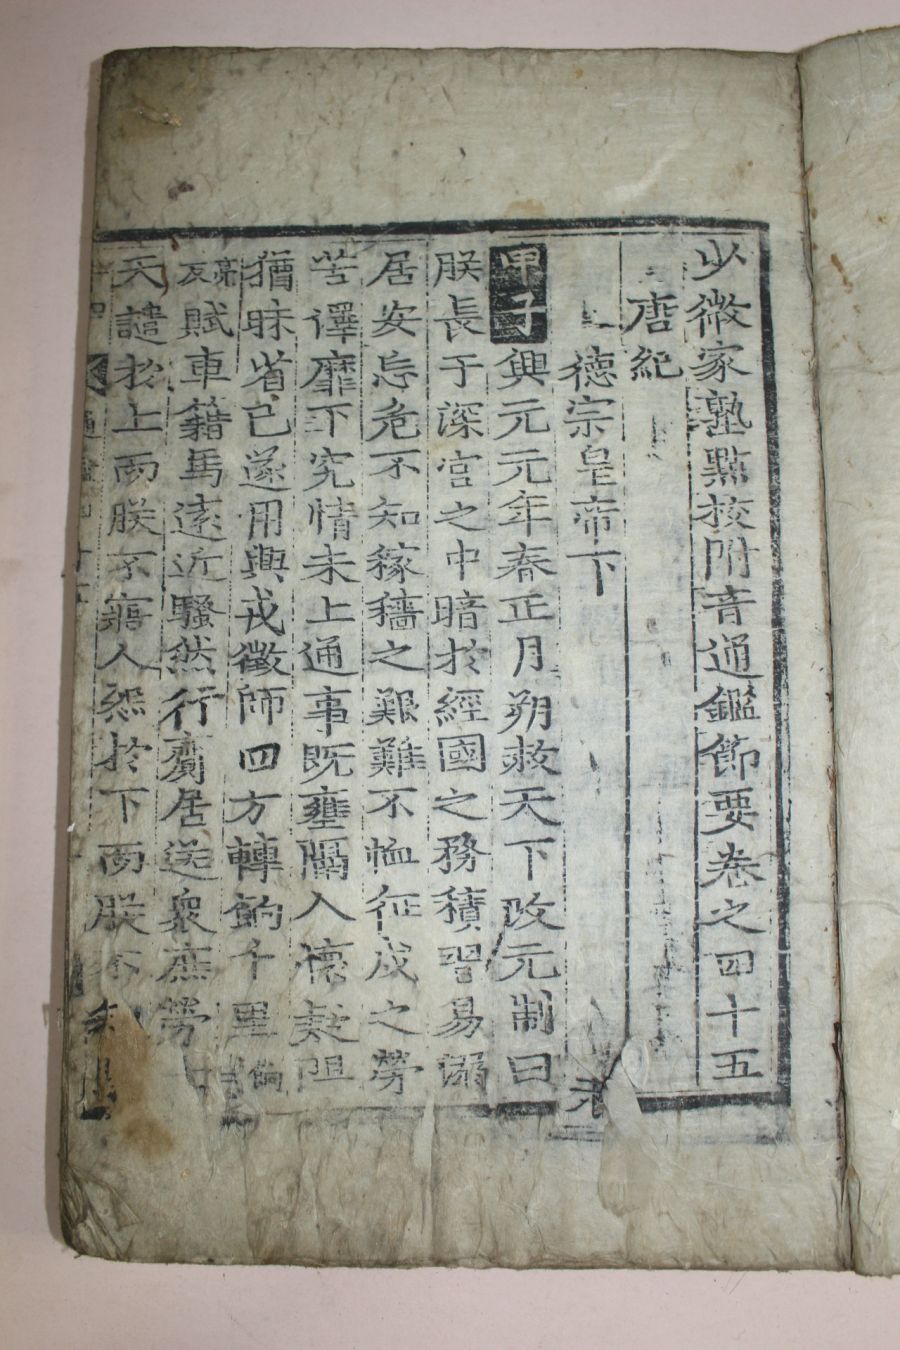 少微家塾點校附音通鑑節要卷之四十五
唐紀
德宗皇帝下
甲子興元元年春正月朔赦天下改元制曰
朕長于深宮之中暗於經國之務積習易溺
居安忘危不知稼穡之艱難不恤征戍之勞
苦澤靡下究情未上通事旣壅隔人懷疑阻
猶昧省己遂用興戎徵師四方轉餉千里餉
亮反賦車籍馬遠近騷然行齎居送衆庶勞
天譴於上而朕不寤人怨於下而朕不知